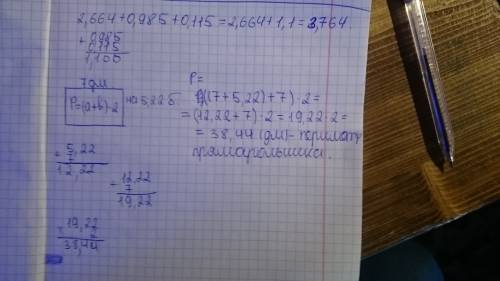 2,664+0,985+0,115=2,664+1,1=3,764.
+0,985
0,115
1,100
7дм
P=(a+b)·2 на 5,22 б.
P=
((7+5,22)+7)·2=
=(12,22+7)·2=19,22·2=
=38,44 (дм)- периметр
прямоугольника.
+5,22
7
12,22
+12,22
7
19,22
×19,22
2
38,44